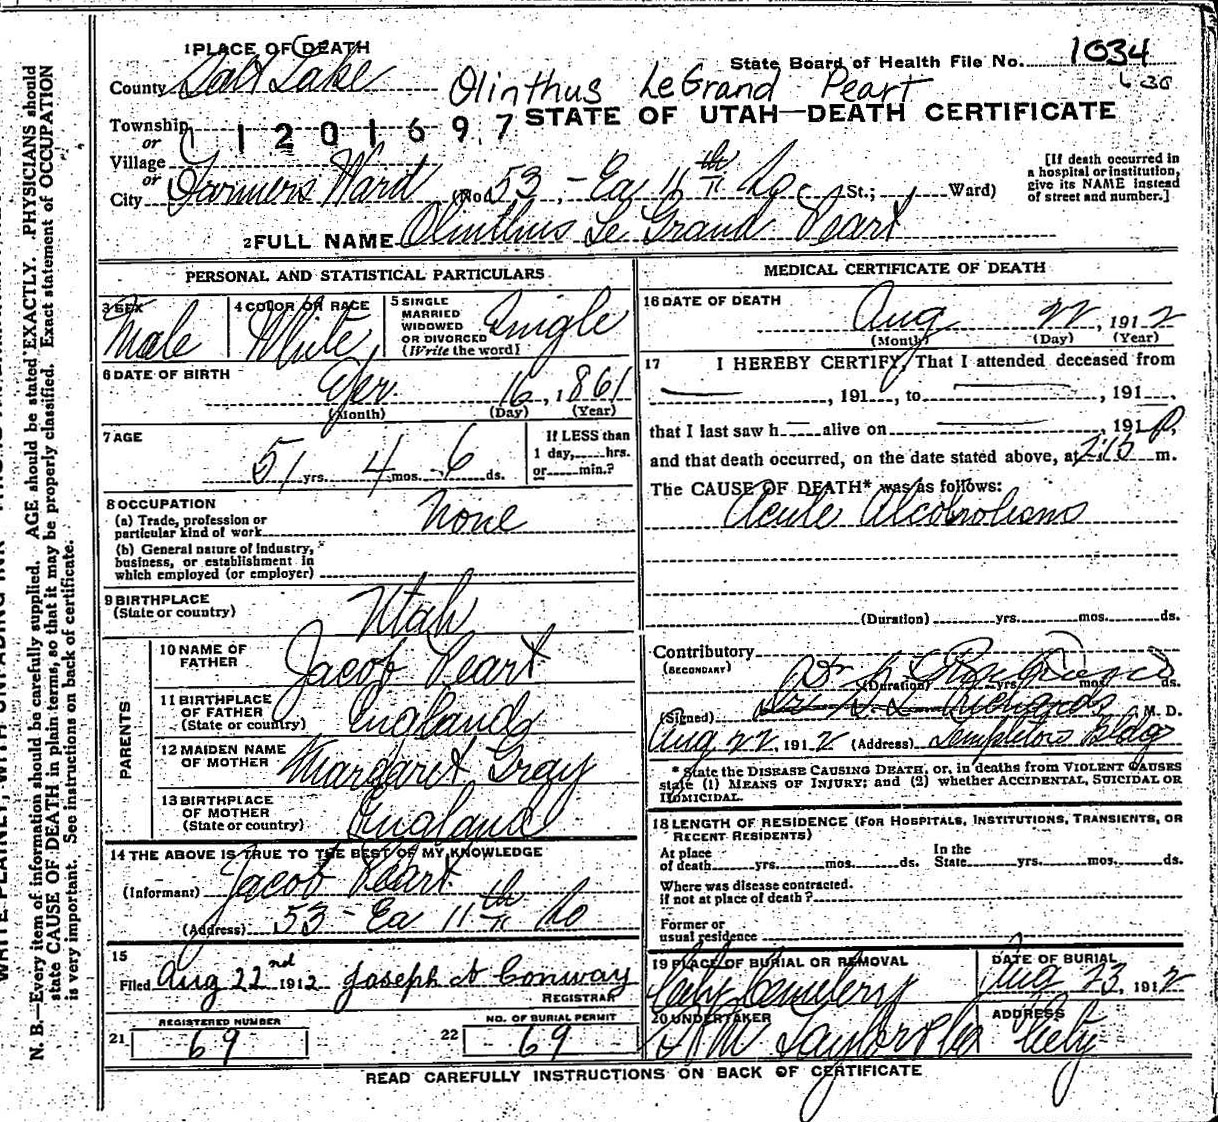 1 PLACE OF DEATH
State Board of Health File No. 1034
County Salt Lake
Olinthus LeGrand Peart
STATE OF UTAH—DEATH CERTIFICATE
Township
1201697
or
Village
or
City Farmers Ward (No. 53 - Ea 11th So St.; Ward)
[If death occurred in
a hospital or institution,
give its NAME instead
of street and number.]
2 FULL NAME Olinthus Le Grand Peart
PERSONAL AND STATISTICAL PARTICULARS
3 SEX Male
4 COLOR OR RACE White
5 SINGLE
MARRIED
WIDOWED
OR DIVORCED
(Write the word) Single
6 DATE OF BIRTH
Apr. 16, 1861
(Month) (Day) (Year)
7 AGE
51 yrs. 4 mos. 6 ds.
If LESS than
1 day, hrs.
or min.?
8 OCCUPATION
(a) Trade, profession or
particular kind of work None
(b) General nature of industry,
business, or establishment in
which employed (or employer)
9 BIRTHPLACE
(State or country) Utah
PARENTS
10 NAME OF
FATHER Jacob Peart
11 BIRTHPLACE
OF FATHER
(State or country) England
12 MAIDEN NAME
OF MOTHER Margaret Gray
13 BIRTHPLACE
OF MOTHER
(State or country) England
14 THE ABOVE IS TRUE TO THE BEST OF MY KNOWLEDGE
(Informant) Jacob Peart
(Address) 53 - Ea 11th So
15
Filed Aug 22nd 1912 Joseph Conway
REGISTRAR
21 REGISTERED NUMBER
69
22 NO. OF BURIAL PERMIT
69
MEDICAL CERTIFICATE OF DEATH
16 DATE OF DEATH
Aug 22, 1912
(Month) (Day) (Year)
17 I HEREBY CERTIFY, That I attended deceased from
, 191 , to , 191 ,
that I last saw h alive on , 191
and that death occurred, on the date stated above, at P. m.
The CAUSE OF DEATH* was as follows:
Acute Alcoholism
(Duration) yrs. mos. ds.
Contributory
(SECONDARY)
(Duration) yrs. mos. ds.
(Signed) Richards M. D.
Aug 22, 1912 (Address) Templeton Bldg
* State the DISEASE CAUSING DEATH, or, in deaths from VIOLENT CAUSES
state (1) MEANS OF INJURY; and (2) whether ACCIDENTAL, SUICIDAL OR
HOMICIDAL.
18 LENGTH OF RESIDENCE (FOR HOSPITALS, INSTITUTIONS, TRANSIENTS, OR
RECENT RESIDENTS)
At place
of death yrs. mos. ds.
In the
State yrs. mos. ds.
Where was disease contracted.
if not at place of death?
Former or
usual residence
19 PLACE OF BURIAL OR REMOVAL
City Cemetery
DATE OF BURIAL
Aug 23, 1912
20 UNDERTAKER
Taylor & Co
ADDRESS
City
READ CAREFULLY INSTRUCTIONS ON BACK OF CERTIFICATE
N. B.—Every item of information should be carefully supplied. AGE should be stated EXACTLY. PHYSICIANS should
state CAUSE OF DEATH in plain terms, so that it may be properly classified. Exact statement of OCCUPATION
is very important. See instructions on back of certificate.